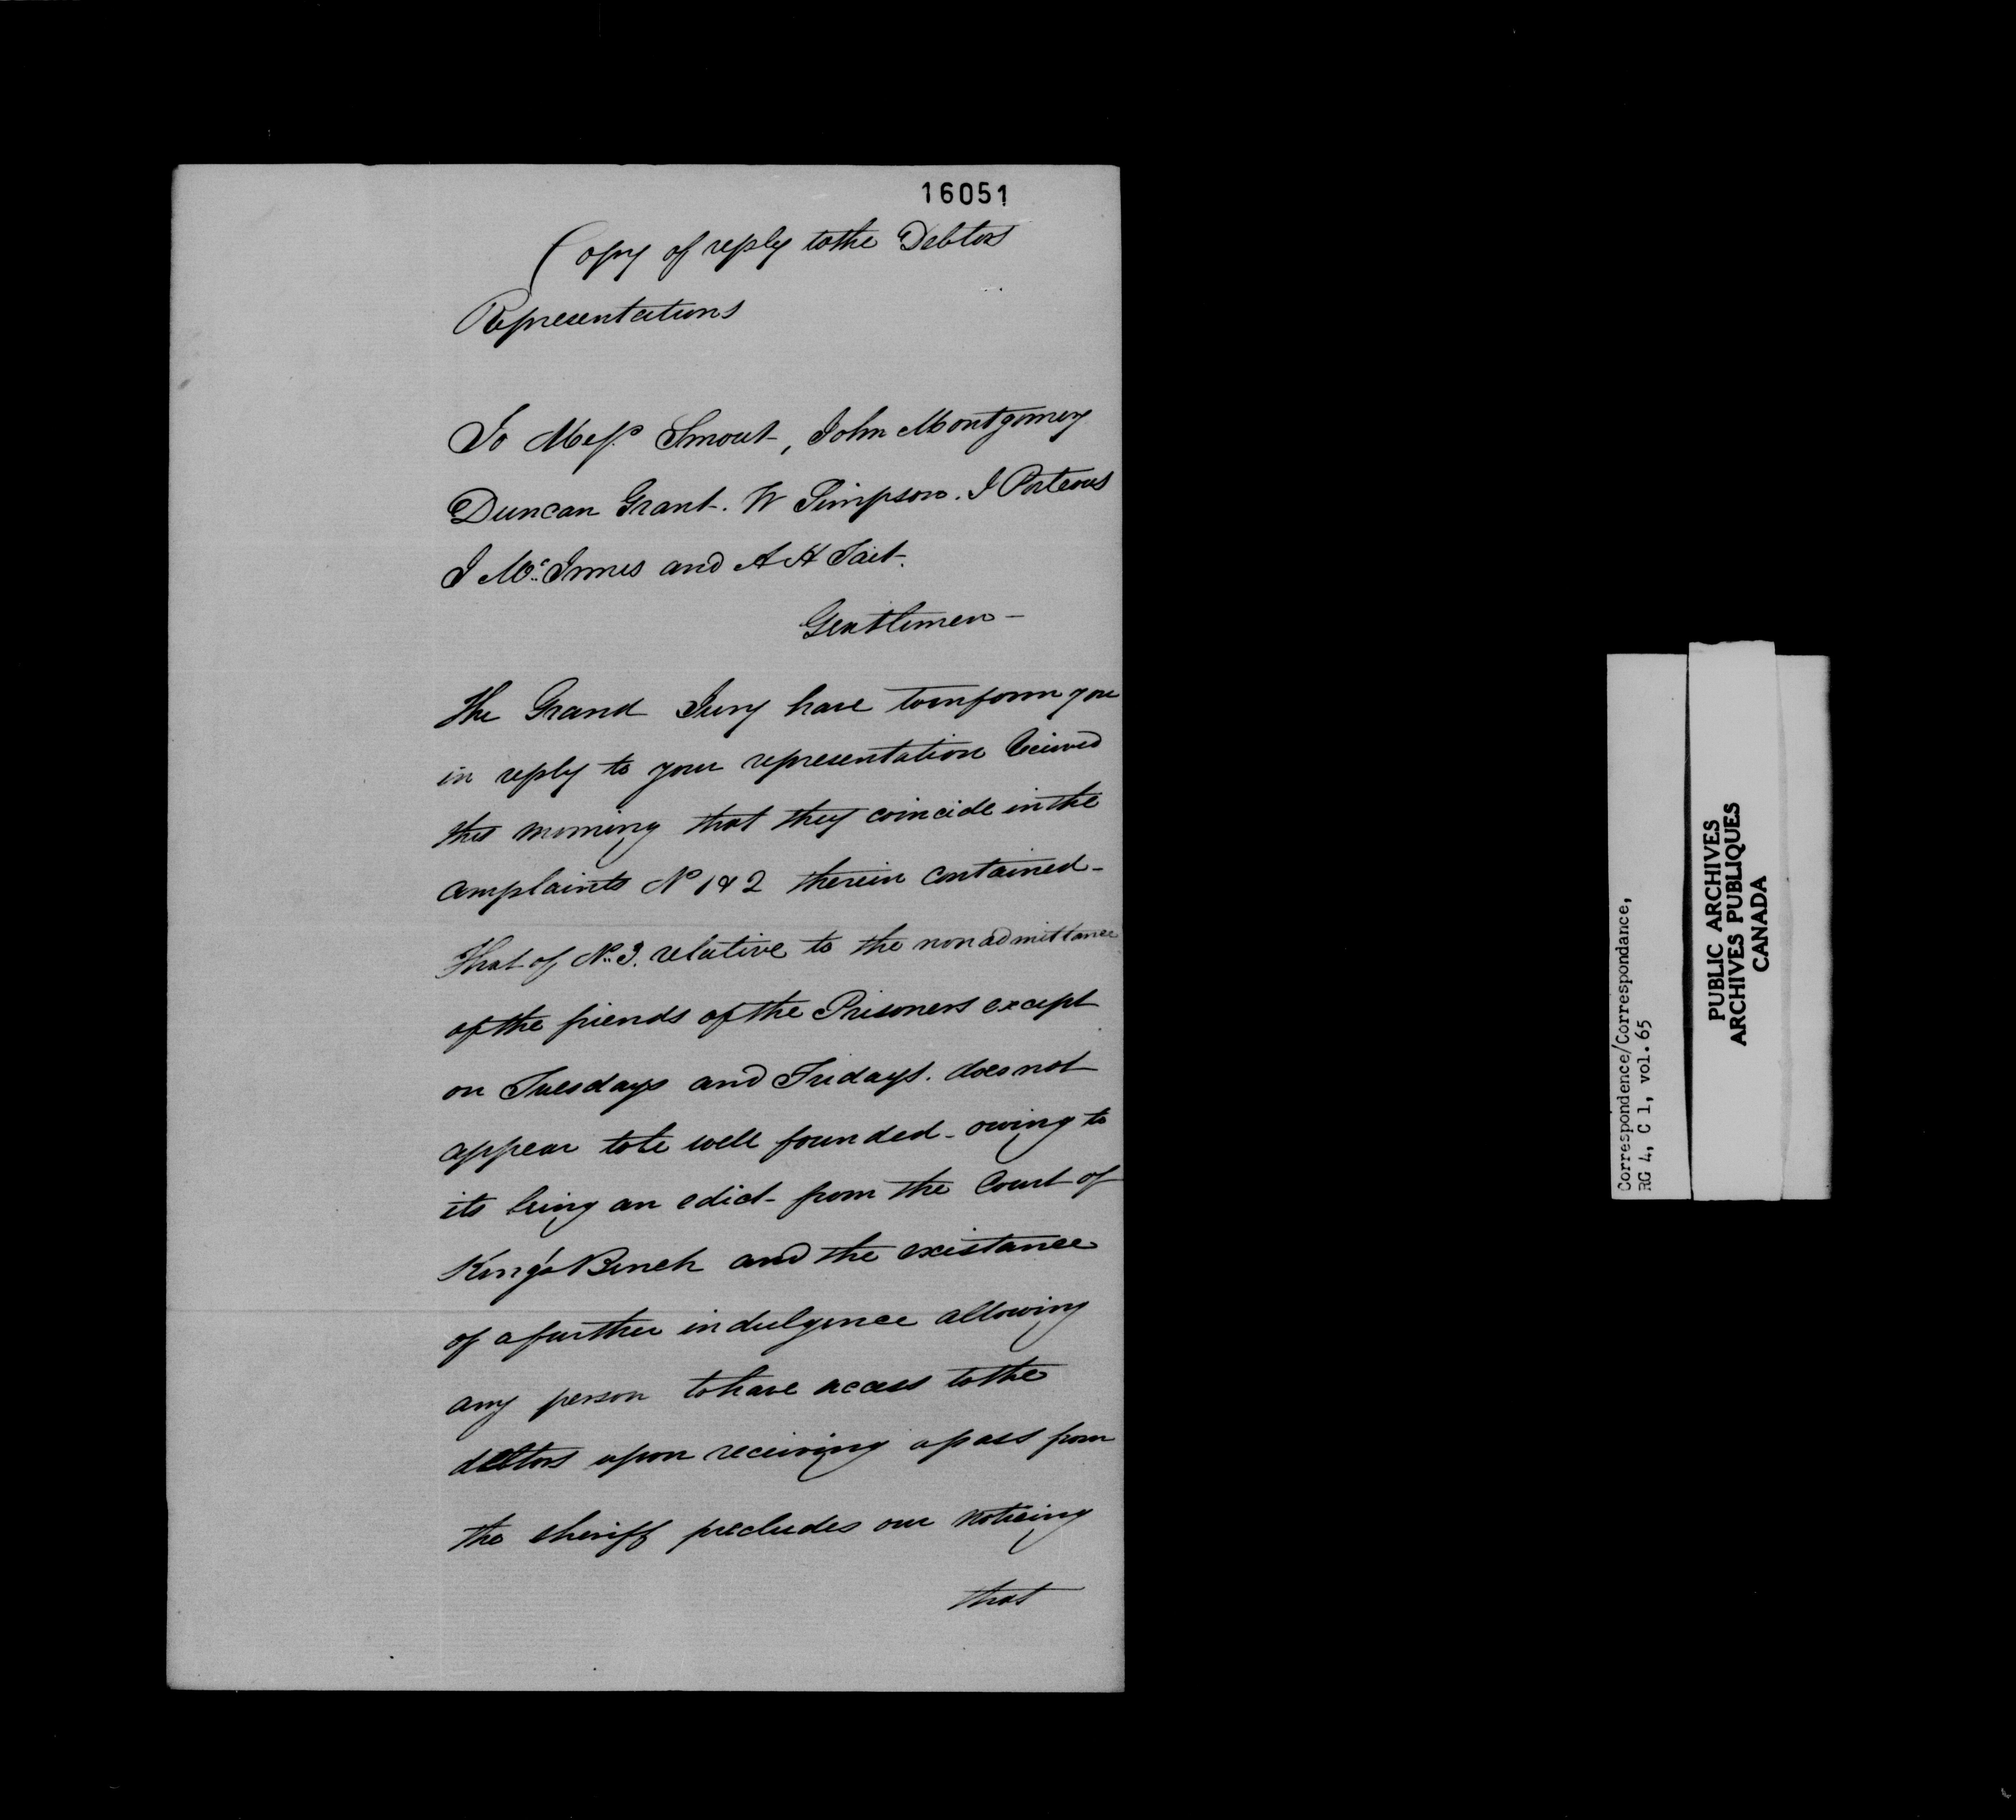 16051
Copy of reply to the Debtors
Representations
To Messrs Smout, John Montgomery
Duncan Grant. W Simpson. J Porteous
J McInnes and A H Tait.
Gentlemen —
The Grand Jury have to inform you
in reply to your representation
this morning that they coincide in the
complaints No 1 & 2 therein contained -
That of No. 3. relative to the non admittance
of the friends of the Prisoners except
on Tuesdays and Fridays. does not
appear to be well founded - owing to
its being an edict - from the Court of
King's Bench and the existance
of a further indulgence allowing
any person to have access to the
debtors upon receiving a pass from
the sheriff precludes our noticing
that
Correspondence/Correspondance,
RG 4, C 1, vol. 65
PUBLIC ARCHIVES
ARCHIVES PUBLIQUES
CANADA